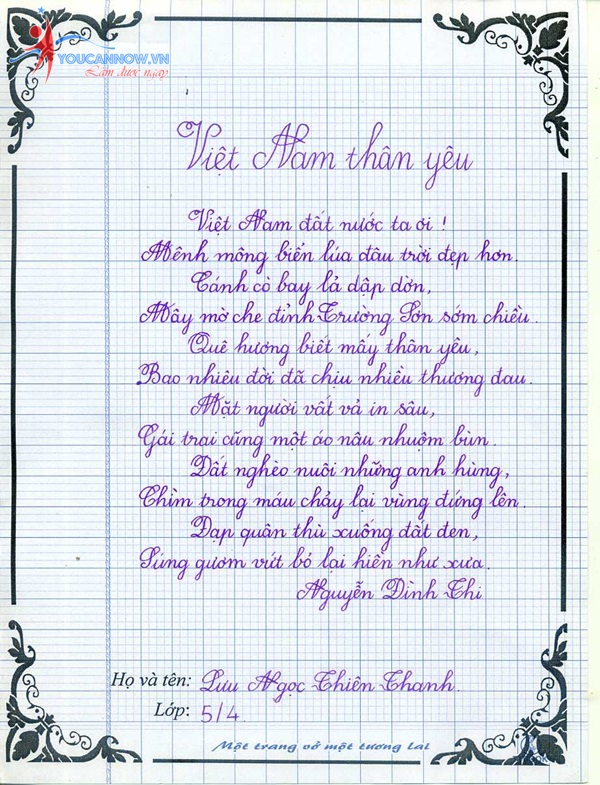 YOUCANNOW.VN
Làm được ngay
Việt Nam thân yêu
Việt Nam đất nước ta ơi !
Mênh mông biển lúa đâu trời đẹp hơn.
Cánh cò bay lả dập dờn,
Mây mờ che đỉnh Trường Sơn sớm chiều.
Quê hương biết mấy thân yêu,
Bao nhiêu đời đã chịu nhiều thương đau.
Mặt người vất vả in sâu,
Gái trai cũng một áo nâu nhuộm bùn.
Đất nghèo nuôi những anh hùng,
Chìm trong máu chảy lại vùng đứng lên.
Đạp quân thù xuống đất đen,
Súng gươm vứt bỏ lại hiền như xưa.
Nguyễn Đình Thi
Họ và tên: Lưu Ngọc Thiên Thanh.
Lớp: 5/4.
Một trang vở một tương lai